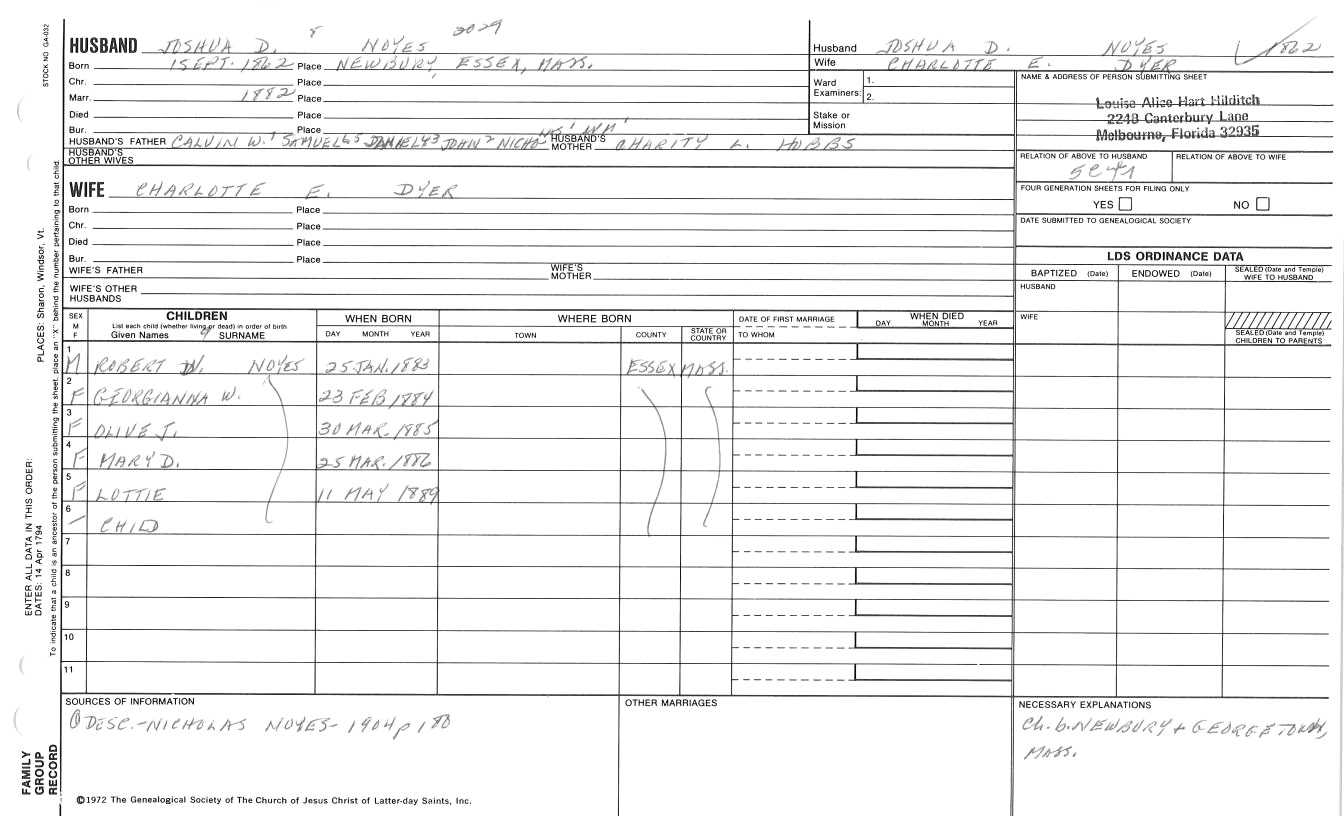 8 2029
HUSBAND JOSHUA D. NOYES
Born 1 SEPT. 1862 Place NEWBURY, ESSEX, MASS.
Chr. Place
Marr. 1882 Place
Died Place
Bur. Place
HUSBAND'S FATHER CALVIN W. SAMUEL JOHN HUSBAND'S MOTHER CHARITY L. HOBBS
HUSBAND'S OTHER WIVES
WIFE CHARLOTTE E. DYER
Born Place
Chr. Place
Died Place
Bur. Place
WIFE'S FATHER WIFE'S MOTHER
WIFE'S OTHER HUSBANDS
Husband JOSHUA D. NOYES 1862
Wife CHARLOTTE E. DYER
Ward Examiners: 1.
2.
Stake or Mission
NAME & ADDRESS OF PERSON SUBMITTING SHEET
Louise Alice Hart Hilditch
2248 Canterbury Lane
Melbourne, Florida 32935
RELATION OF ABOVE TO HUSBAND RELATION OF ABOVE TO WIFE
FOUR GENERATION SHEETS FOR FILING ONLY
YES NO
DATE SUBMITTED TO GENEALOGICAL SOCIETY
LDS ORDINANCE DATA
BAPTIZED (Date) ENDOWED (Date) SEALED (Date and Temple) WIFE TO HUSBAND
HUSBAND
WIFE
SEALED (Date and Temple) CHILDREN TO PARENTS
SEX M F CHILDREN WHEN BORN WHERE BORN DATE OF FIRST MARRIAGE WHEN DIED
List each child (whether living or dead) in order of birth
Given Names 9 SURNAME DAY MONTH YEAR TOWN COUNTY STATE OR COUNTRY TO WHOM DAY MONTH YEAR
1 M ROBERT W. NOYES 25 JAN. 1883 ESSEX MASS.
2 F GEORGIANNA W. 23 FEB 1884
3 F OLIVE J. 30 MAR. 1885
4 F MARY D. 25 MAR. 1886
5 F LOTTIE 11 MAY 1889
6 – CHILD
7
8
9
10
11
SOURCES OF INFORMATION
① DESC.-NICHOLAS NOYES-1904 p 180
OTHER MARRIAGES
NECESSARY EXPLANATIONS
Ch. b. NEWBURY + GEORGETOWN,
MASS.
©1972 The Genealogical Society of The Church of Jesus Christ of Latter-day Saints, Inc.
STOCK NO GA-032
PLACES: Sharon, Windsor, Vt.
ENTER ALL DATA IN THIS ORDER:
DATES: 14 Apr 1794
To indicate that a child is an ancestor of the person submitting the sheet, place an "X" behind the number pertaining to that child.
FAMILY
GROUP
RECORD